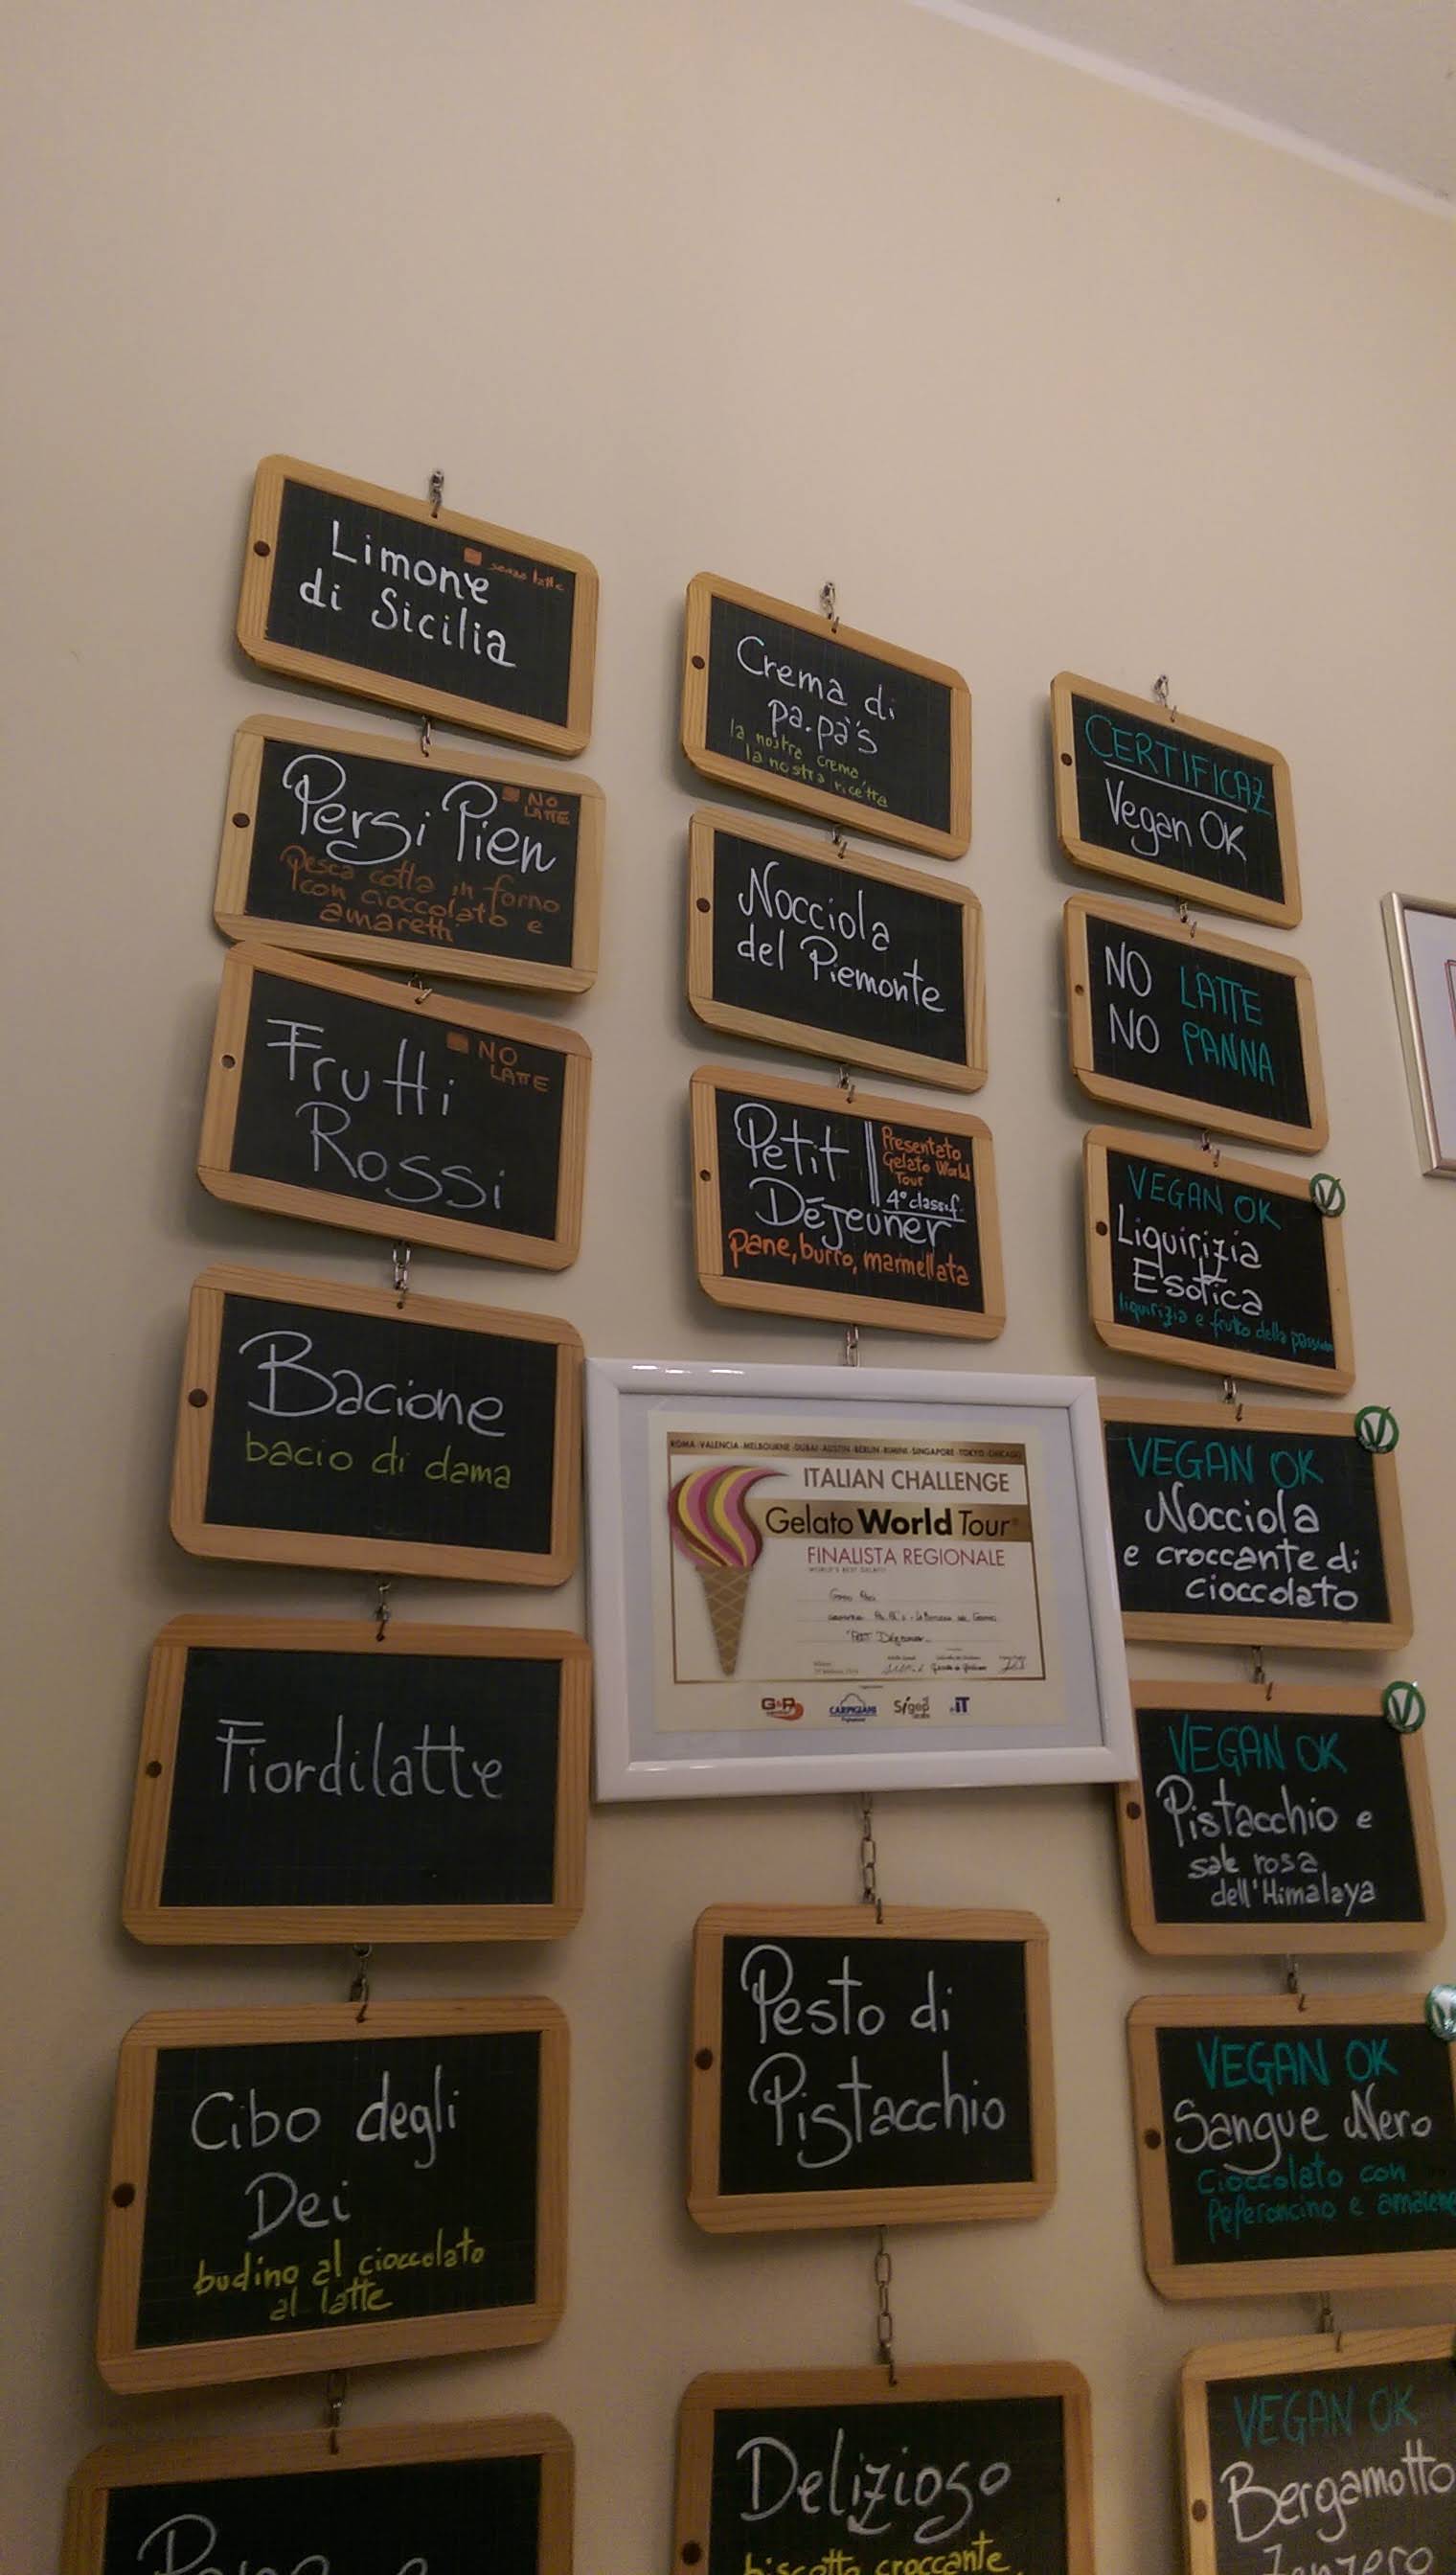 Limone
di Sicilia
senza latte
Persi Pien
NO
LATTE
Pesca cotta in forno
con cioccolato e
amaretti
Frutti
Rossi
NO
LATTE
Bacione
bacio di dama
Fiordilatte
Cibo degli
Dei
budino al cioccolato
al latte
Crema di
pa.pà's
la nostra crema,
la nostra ricetta
Nocciola
del Piemonte
Petit
Déjeuner
Presentato
Gelato World
Tour
4° classif.
pane, burro, marmellata
ROMA · VALENCIA · MELBOURNE · DUBAI · AUSTIN · BERLIN · RIMINI · SINGAPORE · TOKYO · CHICAGO
ITALIAN CHALLENGE
Gelato World Tour
FINALISTA REGIONALE
WORLD'S BEST GELATO
CARPIGIANI
Sigep
Pesto di
Pistacchio
Delizioso
biscotto croccante,
CERTIFICAZ
Vegan OK
NO LATTE
NO PANNA
VEGAN OK
Liquirizia
Esotica
liquirizia e frutto della passion
VEGAN OK
Nocciola
e croccante di
cioccolato
VEGAN OK
Pistacchio e
sale rosa
dell'Himalaya
VEGAN OK
Sangue Nero
Cioccolato con
Peperoncino e
VEGAN OK
Bergamotto
Zenzero